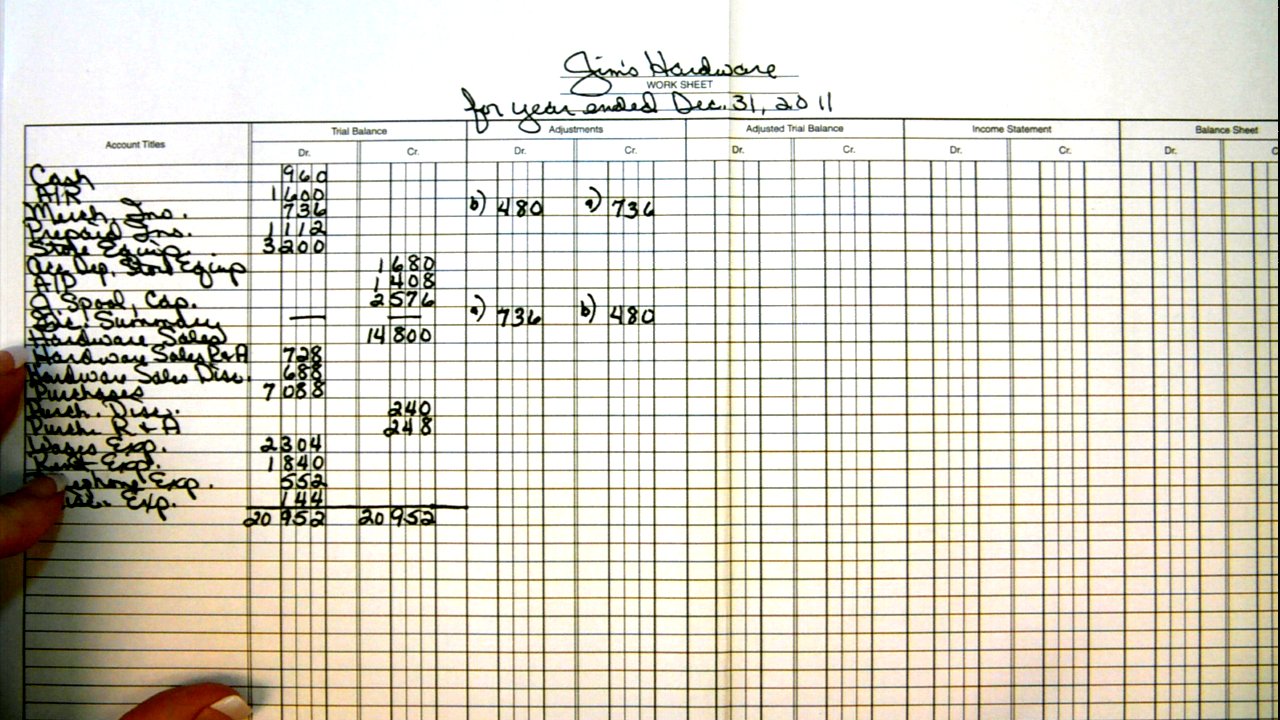 Jim's Hardware
WORK SHEET
for year ended Dec. 31, 2011
Account Titles Trial Balance Adjustments Adjusted Trial Balance Income Statement Balance Sheet
Dr. Cr. Dr. Cr. Dr. Cr. Dr. Cr. Dr. C
Cash 960
A/R 1600
Merch. Inv. 736 b) 480 a) 736
Prepaid Ins. 1112
Store Equip. 3200
Acc. Dep. Store Equip 1680
A/P 1408
J. Spool, Cap. 2576
Inc. Summary — — a) 736 b) 480
Hardware Sales 14800
Hardware Sales R+A 728
Hardware Sales Disc. 688
Purchases 7088
Purch. Disc. 240
Purch. R+A 248
Wages Exp. 2304
Rent Exp. 1840
ephone Exp. 552
Exp. 144
20952 20952